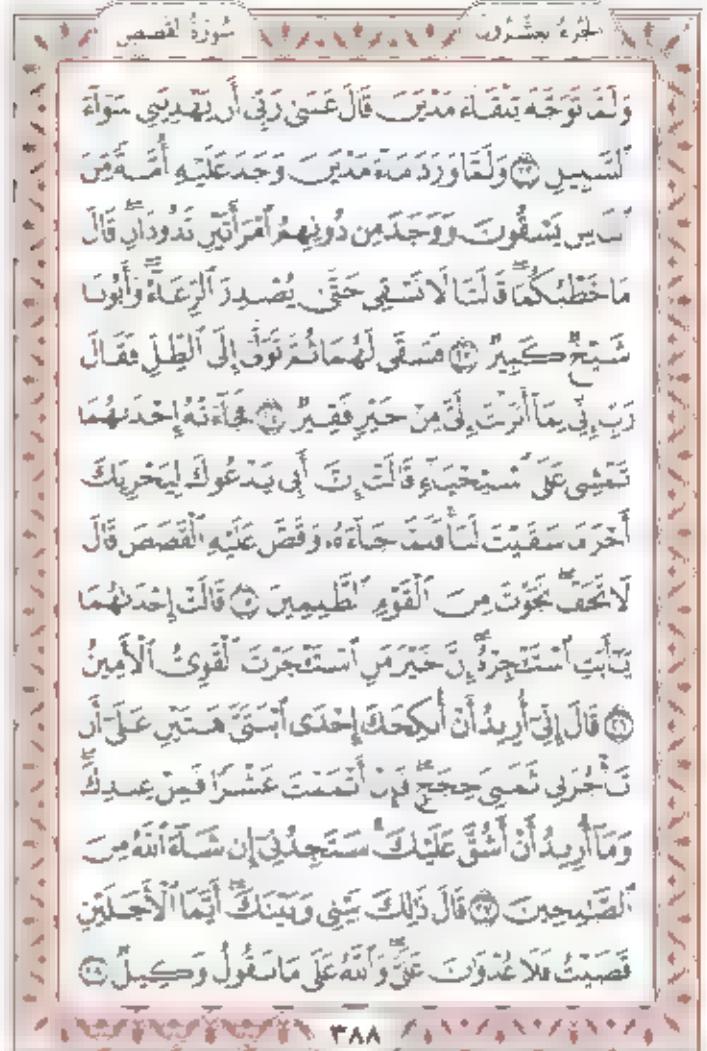 الجزء العشرون سورة القصص
وَلَمَّا تَوَجَّهَ تِلْقَاءَ مَدْيَنَ قَالَ عَسَىٰ رَبِّي أَن يَهْدِيَنِي سَوَاءَ
ٱلسَّبِيلِ ٢٢ وَلَمَّا وَرَدَ مَاءَ مَدْيَنَ وَجَدَ عَلَيْهِ أُمَّةً مِّنَ
ٱلنَّاسِ يَسْقُونَ وَوَجَدَ مِن دُونِهِمُ ٱمْرَأَتَيْنِ تَذُودَانِ ۖ قَالَ
مَا خَطْبُكُمَا ۖ قَالَتَا لَا نَسْقِي حَتَّىٰ يُصْدِرَ ٱلرِّعَاءُ ۖ وَأَبُونَا
شَيْخٌ كَبِيرٌ ٢٣ فَسَقَىٰ لَهُمَا ثُمَّ تَوَلَّىٰ إِلَى ٱلظِّلِّ فَقَالَ
رَبِّ إِنِّي لِمَا أَنزَلْتَ إِلَيَّ مِنْ خَيْرٍ فَقِيرٌ ٢٤ فَجَاءَتْهُ إِحْدَىٰهُمَا
تَمْشِي عَلَى ٱسْتِحْيَاءٍ قَالَتْ إِنَّ أَبِي يَدْعُوكَ لِيَجْزِيَكَ
أَجْرَ مَا سَقَيْتَ لَنَا ۚ فَلَمَّا جَاءَهُ وَقَصَّ عَلَيْهِ ٱلْقَصَصَ قَالَ
لَا تَخَفْ ۖ نَجَوْتَ مِنَ ٱلْقَوْمِ ٱلظَّٰلِمِينَ ٢٥ قَالَتْ إِحْدَىٰهُمَا
يَٰأَبَتِ ٱسْتَـْٔجِرْهُ ۖ إِنَّ خَيْرَ مَنِ ٱسْتَـْٔجَرْتَ ٱلْقَوِيُّ ٱلْأَمِينُ
٢٦ قَالَ إِنِّي أُرِيدُ أَنْ أُنكِحَكَ إِحْدَى ٱبْنَتَيَّ هَٰتَيْنِ عَلَىٰ أَن
تَأْجُرَنِي ثَمَٰنِيَ حِجَجٍ ۖ فَإِنْ أَتْمَمْتَ عَشْرًا فَمِنْ عِندِكَ ۖ
وَمَا أُرِيدُ أَنْ أَشُقَّ عَلَيْكَ ۚ سَتَجِدُنِي إِن شَاءَ ٱللَّهُ مِنَ
ٱلصَّٰلِحِينَ ٢٧ قَالَ ذَٰلِكَ بَيْنِي وَبَيْنَكَ ۖ أَيَّمَا ٱلْأَجَلَيْنِ
قَضَيْتُ فَلَا عُدْوَٰنَ عَلَيَّ ۖ وَٱللَّهُ عَلَىٰ مَا نَقُولُ وَكِيلٌ ٢٨
٣٨٨